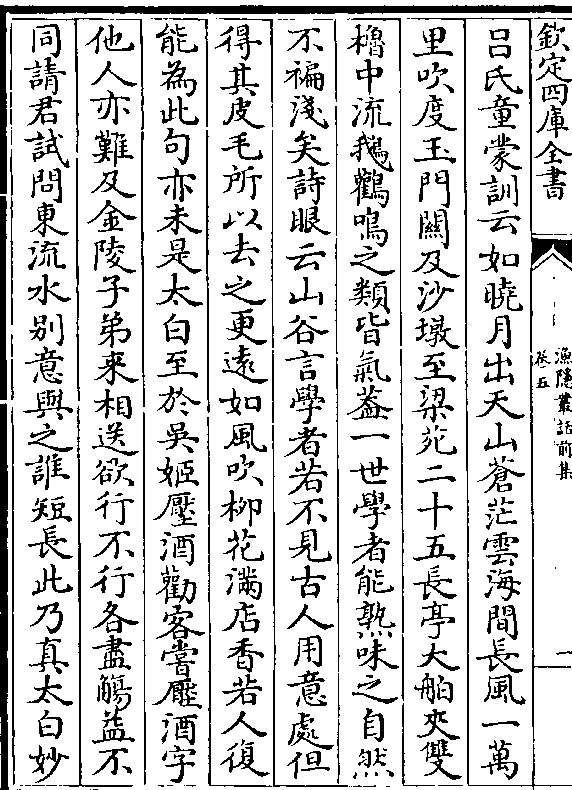 欽定四庫全書
漁隱叢話前集
卷五
一
呂氏童蒙訓云如曉月出天山蒼茫雲海間長風一萬
里吹度玉門關及沙墩至梁苑二十五長亭大舶夾雙
櫓中流鵝鸛鳴之類皆氣蓋一世學者能熟味之自然
不褊淺矣詩眼云山谷言學者若不見古人用意處但
得其皮毛所以去之更遠如風吹柳花滿店香若人復
能為此句亦未是太白至於吳姬壓酒勸客嘗壓酒字
他人亦難及金陵子弟來相送欲行不行各盡觴益不
同請君試問東流水别意與之誰短長此乃真太白妙